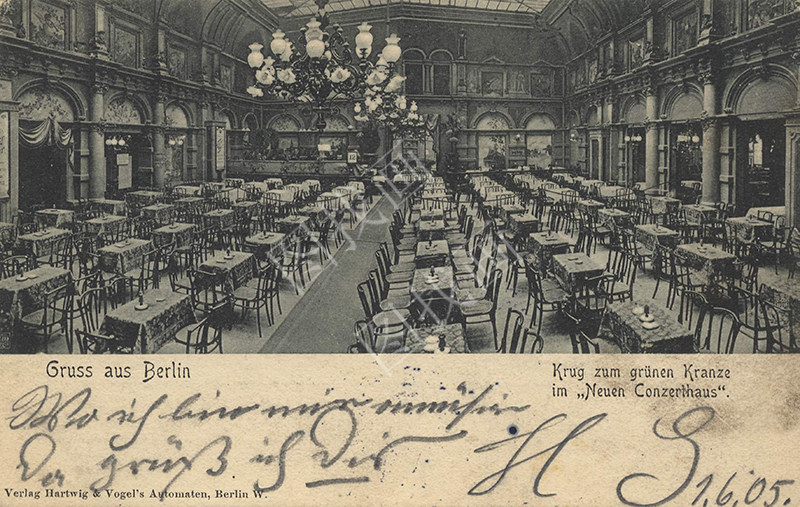 Gruss aus Berlin
Krug zum grünen Kranze
im „Neuen Conzerthaus“.
Wo ich bin mir
Da grüß ich Dir H S
1.6.05.
Verlag Hartwig & Vogel's Automaten, Berlin W.